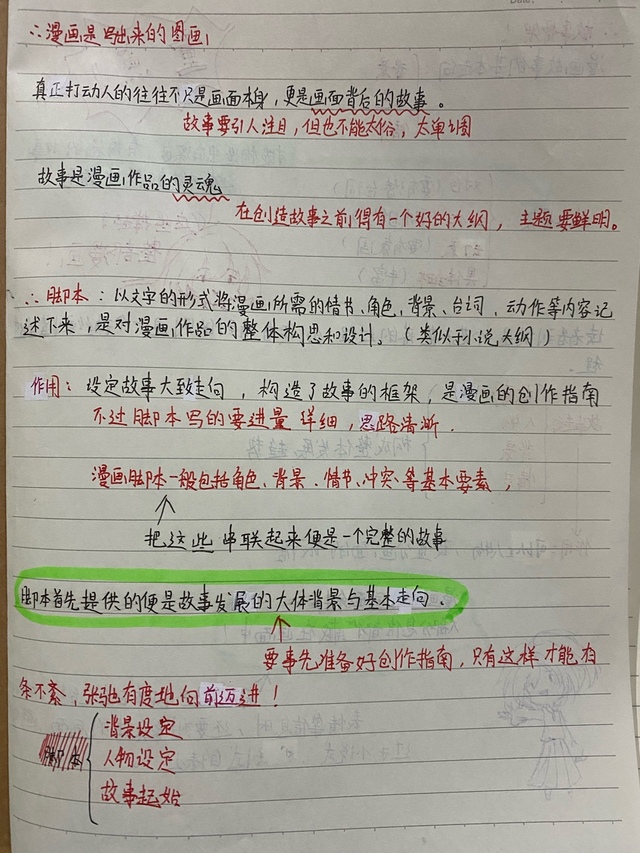 ∴漫画是写出来的图画！
真正打动人的往往不只是画面本身，更是画面背后的故事。
故事要引人注目，但也不能太俗，太单调
故事是漫画作品的灵魂
在创造故事之前得有一个好的大纲，主题要鲜明。
∴脚本：以文字的形式将漫画所需的情节、角色、背景、台词、动作等内容记
述下来，是对漫画作品的整体构思和设计。（类似于小说大纲）
作用：设定故事大致走向，构造了故事的框架，是漫画的创作指南
不过脚本写的要进量详细，思路清淅.
漫画脚本一般包括角色、背景、情节、冲突等基本要素，
把这些串联起来便是一个完整的故事
脚本首先提供的便是故事发展的大体背景与基本走向.
要事先准备好创作指南，只有这样才能有
条不紊，张驰有度地向前迈进！
脚本
背景设定
人物设定
故事起始